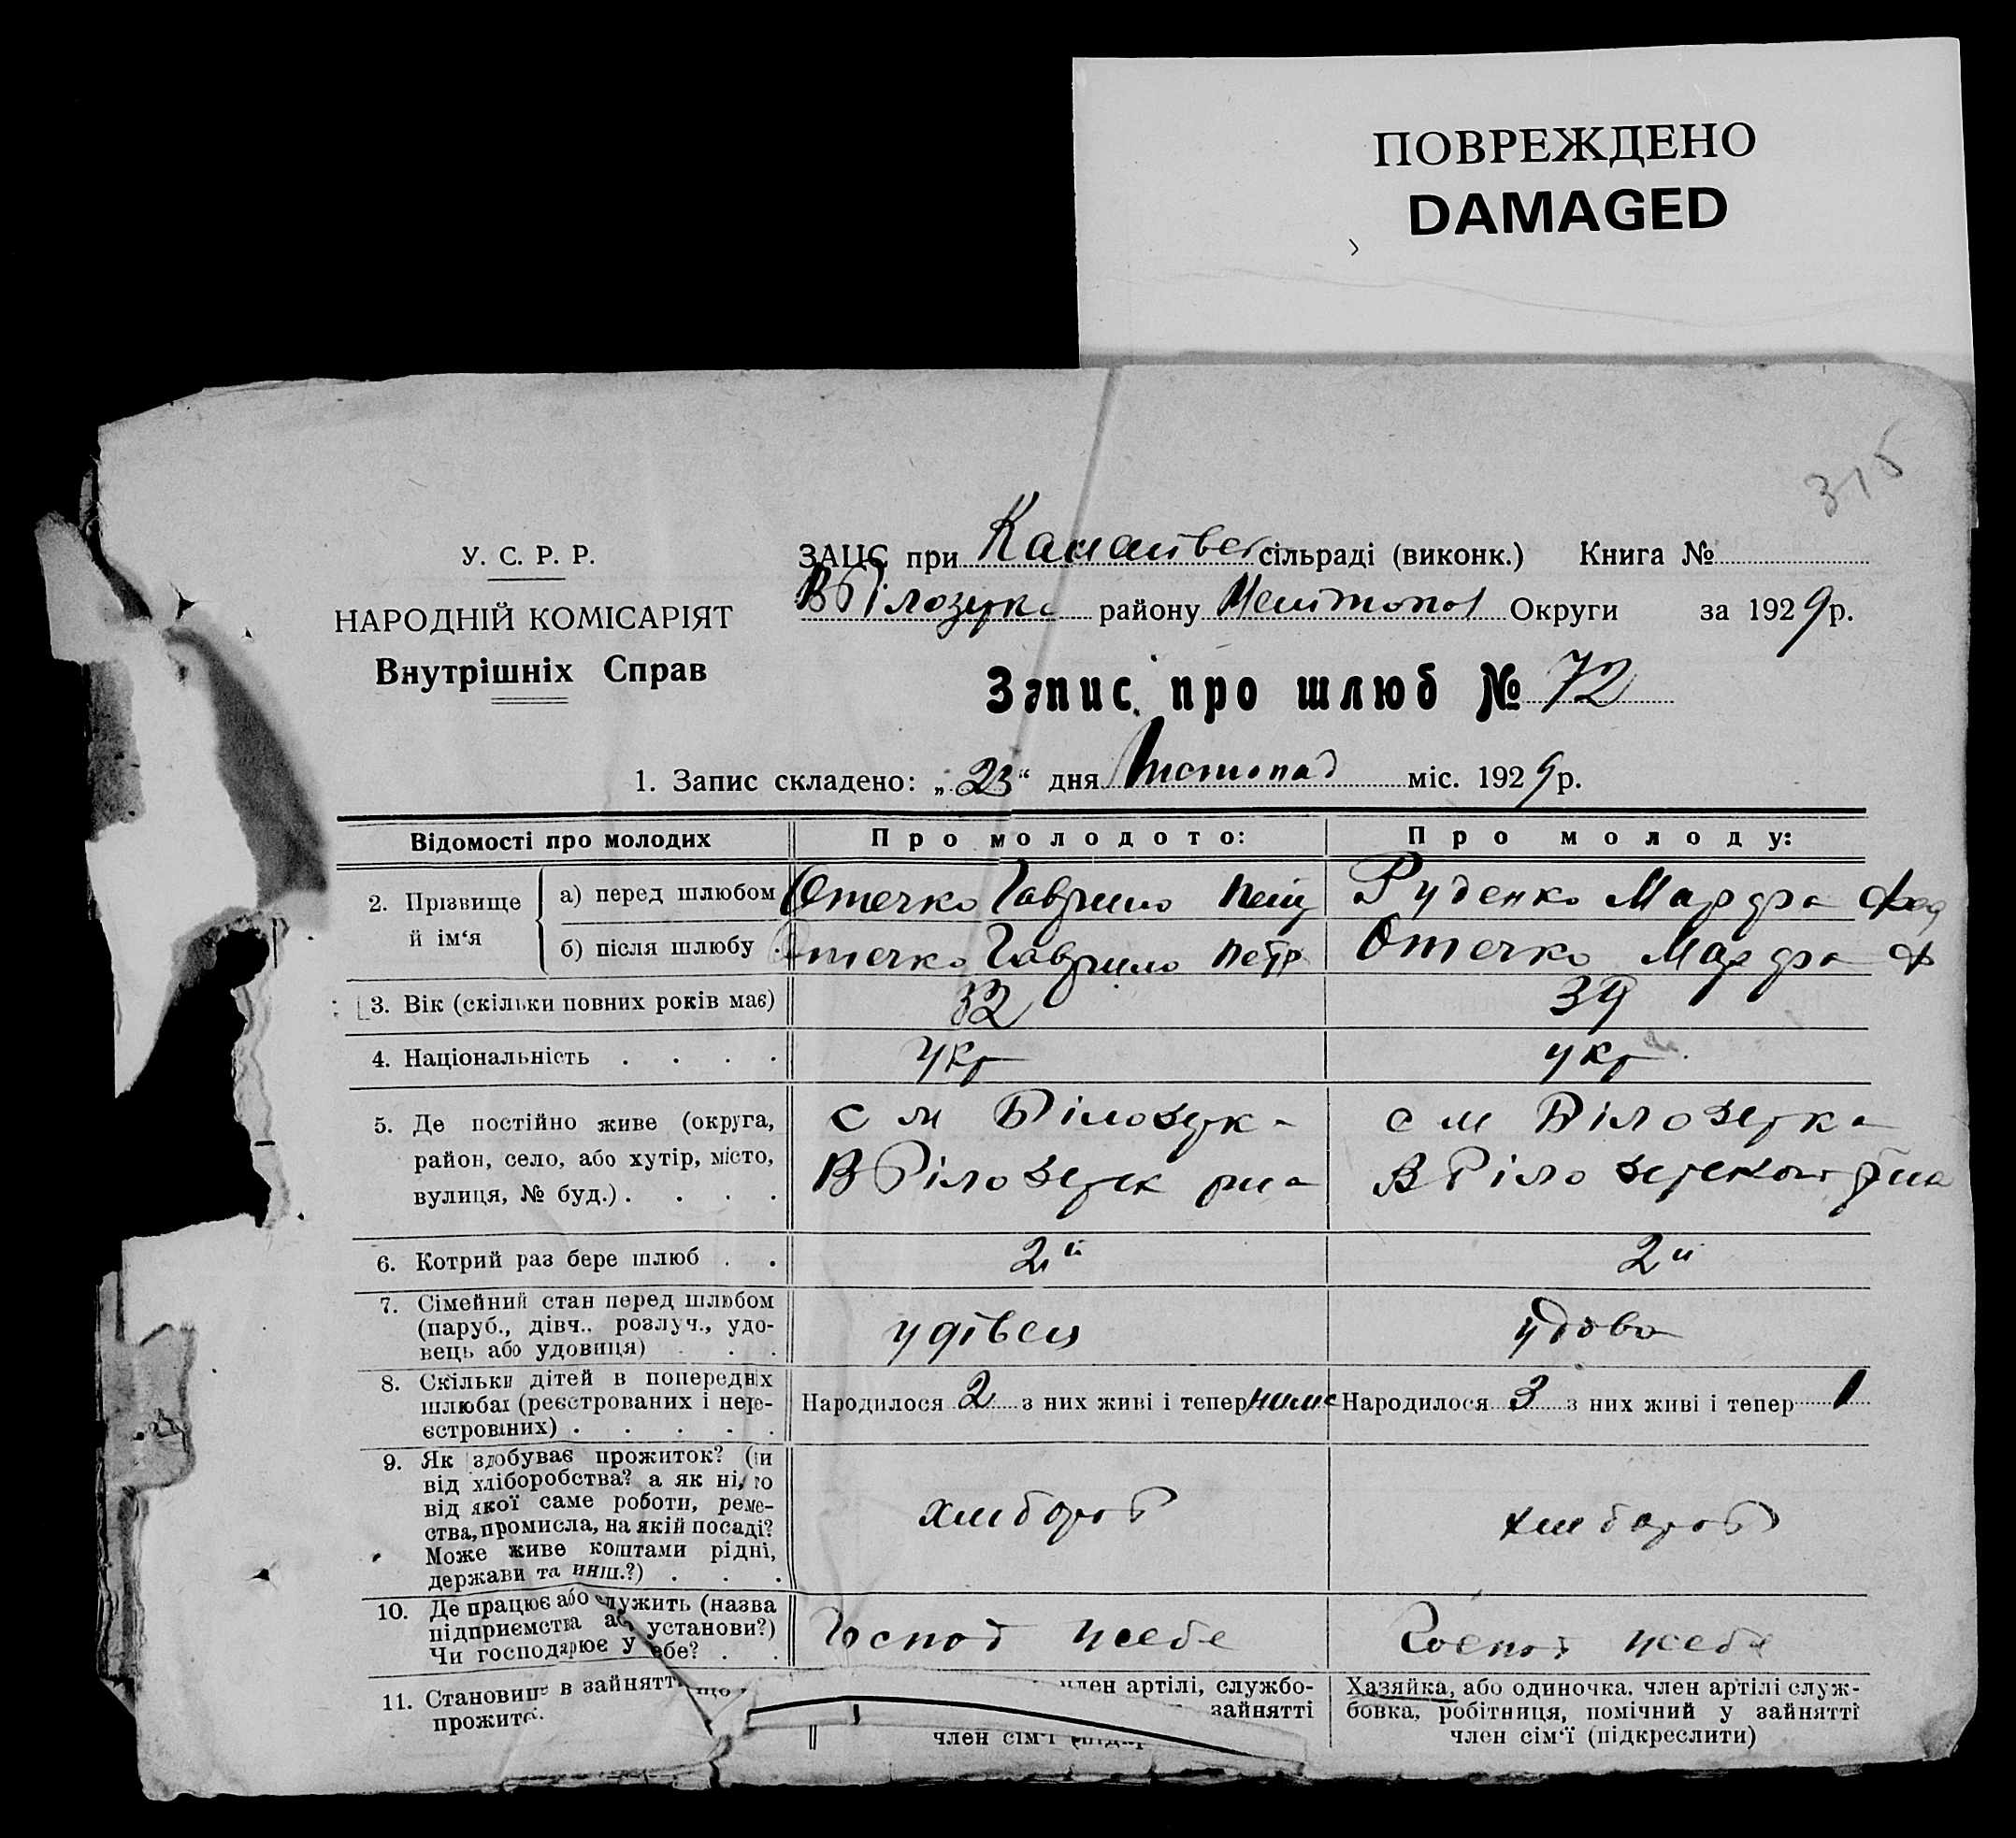 ПОВРЕЖДЕНО
DAMAGED
315
У. С. Р. Р.
НАРОДНІЙ КОМІСАРІЯТ
Внутрішніх Справ
ЗАЦС при сільраді (виконк.) Книга №
В Білозерка району Округи за 1929 р.
Запис про шлюб № 72
1. Запис складено: „23“ дня Листопад міс. 1929 р.
Відомості про молодих
Про молодого:
Про молоду:
2. Прізвище й ім‘я
а) перед шлюбом
Отечко Гаврило Руденко Марфа
б) після шлюбу .
Отечко Гаврило Петр Отечко Марфа Ф
3. Вік (скільки повних років має) 32 39
4. Національність . . . . укр укр
5. Де постійно живе (округа,
район, село, або хутір, місто,
вулиця, № буд.) . . . .
с м Білозерка
В Білозерк р-на
с м Білозерка
В Білозеркою р-на
6. Котрий раз бере шлюб . . 2й 2й
7. Сімейний стан перед шлюбом
(паруб., дівч., розлуч., удо-
вець або удовиця) . . .
удівец удова
8. Скільки дітей в попередніх
шлюбах (реєстрованих і нере-
єстрованих) . . . . .
Народилося 2 з них живі і тепер нима
Народилося 3 з них живі і тепер 1
9. Як здобуває прожиток? (чи
від хліборобства? а як ні, то
від якої саме роботи, реме-
ства, промисла, на якій посаді?
Може живе коштами рідні,
держави та инш.?) . . .
хлибороб хлибороб
10. Де працює або служить (назва
підприємства або установи?)
Чи господарює у себе? . .
Господ усебе Господ усебе
11. Становище в зайнятті, що
прожиток
член артілі, службо-
зайнятті
член сім‘ї
Хазяйка, або одиночка, член артілі служ-
бовка, робітниця, помічний у зайнятті
член сім‘ї (підкреслити)